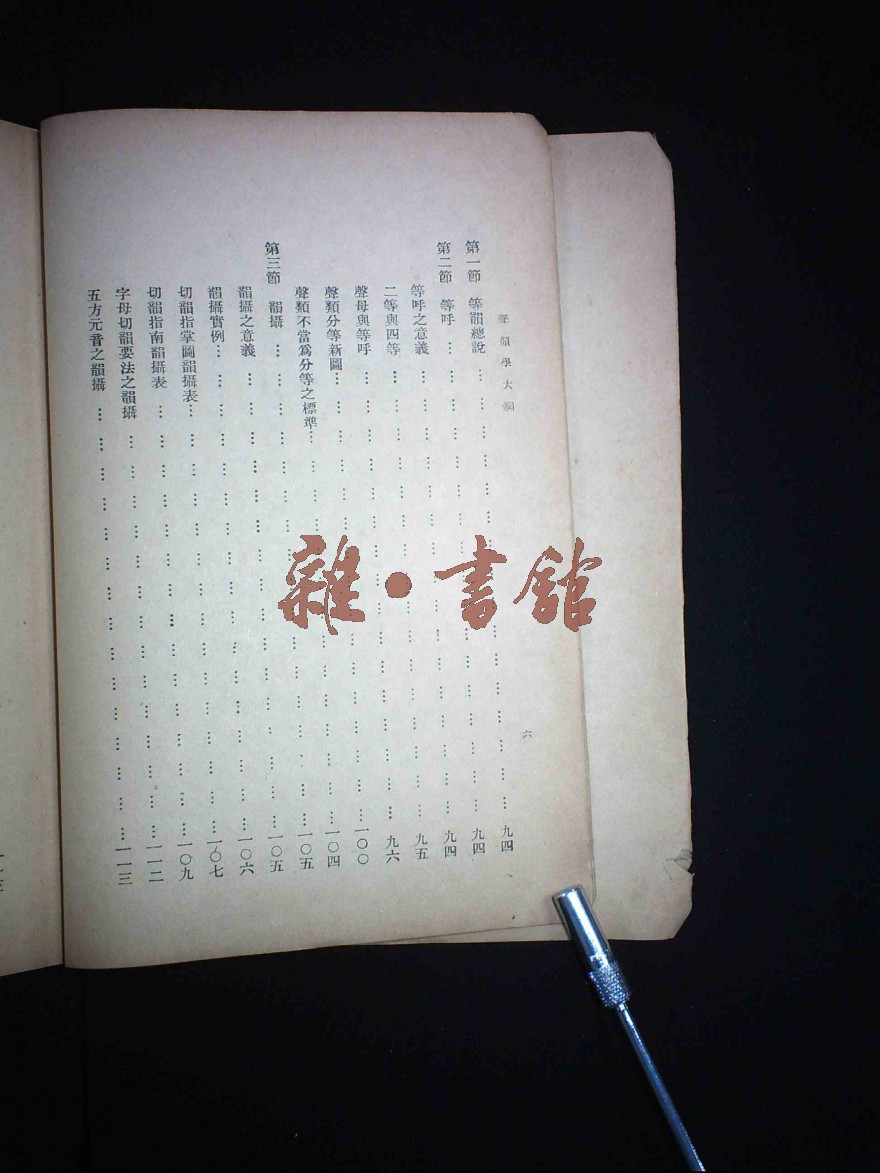 聲韻學大綱 六
第一節 等韻總說 … … … … … … … … … … … … … 九四
第二節 等呼 … … … … … … … … … … … … … … 九四
等呼之意義 … … … … … … … … … … … … … 九四
二等與四等 … … … … … … … … … … … … … 九五
聲母與等呼 … … … … … … … … … … … … … 九六
聲類分等新圖 … … … … … … … … … … … … 一〇〇
聲類不當爲分等之標準 … … … … … … … … … … 一〇四
第三節 韻攝 … … … … … … … … … … … … … 一〇五
韻攝之意義 … … … … … … … … … … … … … 一〇五
韻攝實例 … … … … … … … … … … … … … … 一〇六
切韻指掌圖韻攝表 … … … … … … … … … … … 一〇七
切韻指南韻攝表 … … … … … … … … … … … … 一〇九
字母切韻要法之韻攝 … … … … … … … … … … … 一一二
五方元音之韻攝 … … … … … … … … … … … … 一一三
雜·書館